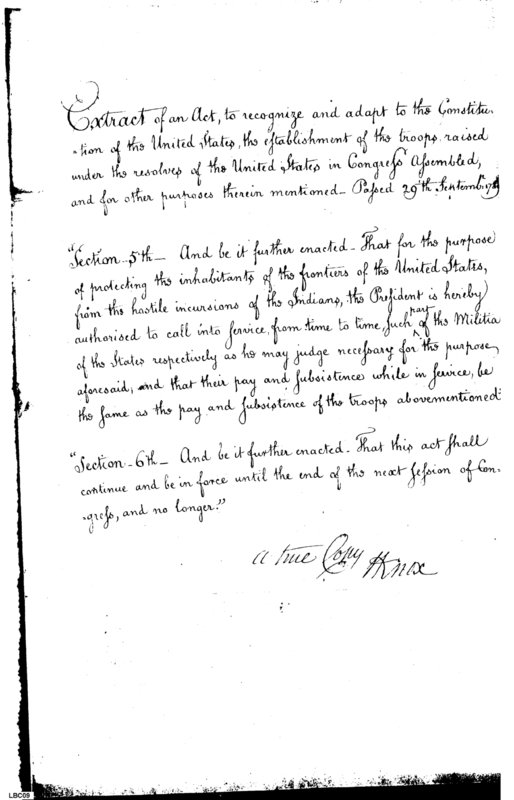 Extract of an Act, to recognize and adapt to the Constitu-
-tion of the United States, the establishment of the troops raised
under the resolves of the United States in Congress Assembled,
and for other purposes therein mentioned – Passed 29th Septemb.
"Section – 5th – And be it further enacted – That for the purpose
of protecting the inhabitants of the frontiers of the United States,
from the hostile incursions of the Indians, the President is hereby
authorised to call into service from time to time, such part of the Militia
of the States respectively as he may judge necessary for the purpose
aforesaid, and that their pay and subsistence while in service, be
the same as the pay and subsistence of the troops abovementioned
"Section – 6th – And be it further enacted – That this act shall
continue and be in force until the end of the next session of Con-
-gress, and no longer."
a true Copy
HKnox
LBC09